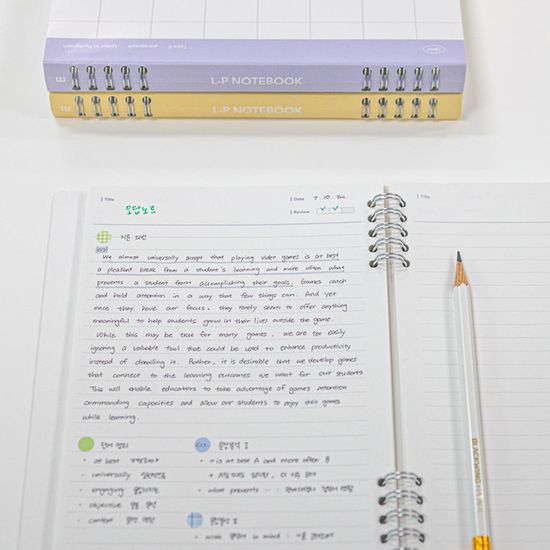 L-P NOTEBOOK
L-P NOTEBOOK
Title
오답노트
Date 7. 10. Fri
Review
Title
지문 파악
We almost universally accept that playing video games is at best
a pleasant break from a student's learning and more often what
prevents a student from accomplishing their goals. Games catch
and hold attention in a way that few things can. And yet
once they have our focus, they rarely seem to offer anything
meaningful to help students grow in their lives outside the game.
While this may be true for many games, we are too easily
ignoring a valuable tool that could be used to enhance productivity
instead of derailing it. Rather, it is desirable that we develop games
that connect to the learning outcomes we want for our students
This will enable educators to take advantage of games attention
commanding capacities and allow our students to enjoy their games
while learning.
단어 정리
오답분석 I
at best
~ is at best A and more often B
universally
engaging
what prevents
objective
오답분석 II
content
with in mind
BLACKWING